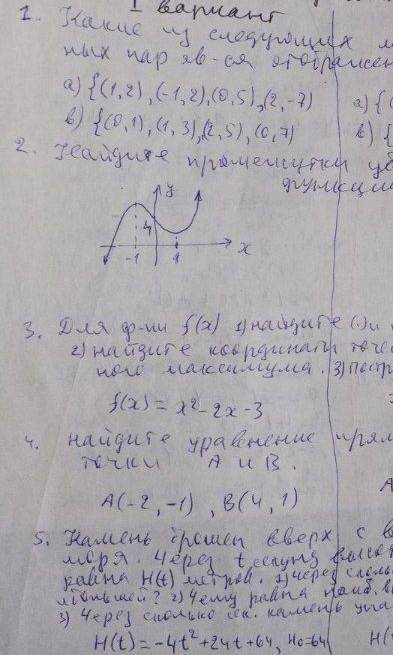 I вариант
1. Какие из следующих м
ных пар яв-ся отображен
а) {(1,2),(-1,2),(0,5),(2,-7)
а) {(
в) {(0,1),(1,3),(2,5),(0,7)
в) {
2. Найдите промежутки уб
функции
y
4
-1 1 x
3. Для ф-ии f(x) 1) найдите (.)и
2) найдите координаты точе
ного максимума. 3) постр
f(x) = x²-2x-3
4. найдите уравнение прям
точки А и В.
A(-2,-1), B(4,1)
A
5. Камень брошен вверх с в
моря. Через t секунд высот
равна H(t) метров. 1) через сколь
2) Чему равна наиб. в
3) Через сколько сек. камень упа
H(t) = -4t²+24t+64, H₀=64
H(